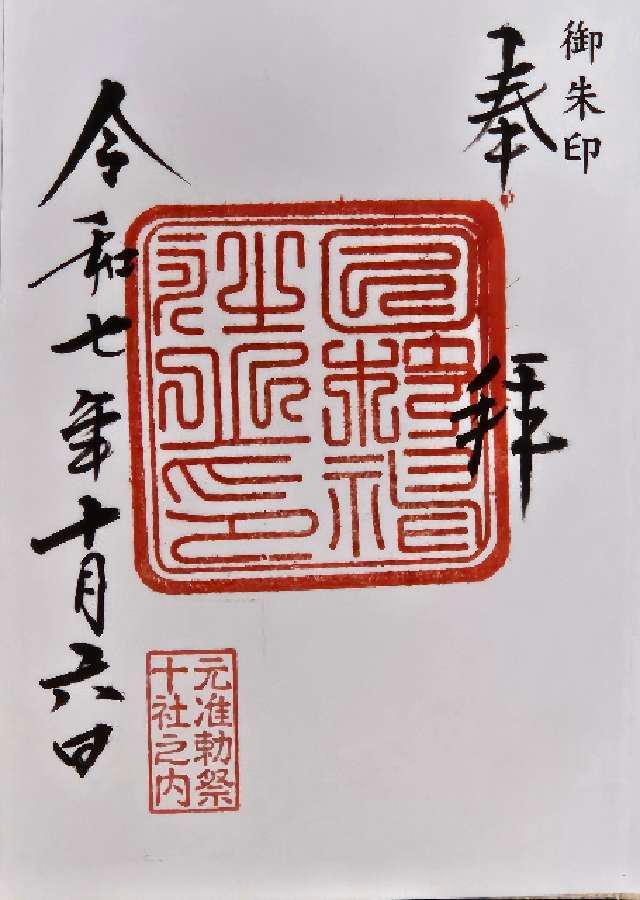 御朱印
奉拝
元准勅祭
十社之内
令和七年十月六日